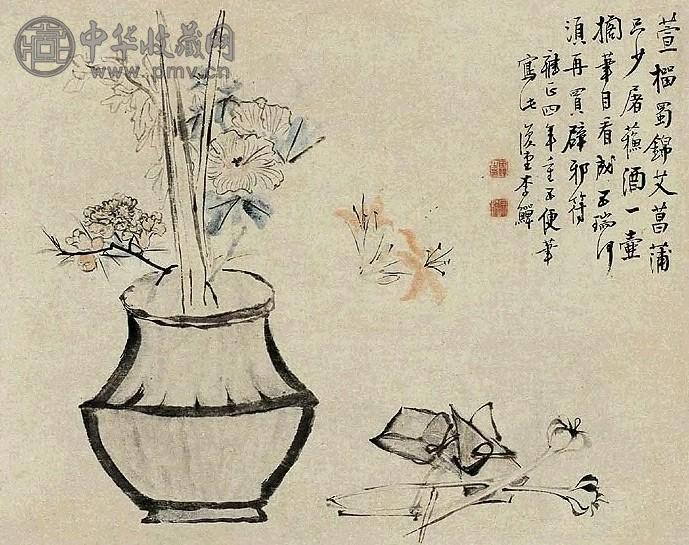 中华收藏网
www.pmv.cn
萱榴蜀錦艾菖蒲
只少屠蘇酒一壺
摘筆自看成五瑞何
須再買辟邪符
雍正四年重五便筆
寫此復堂李鱓